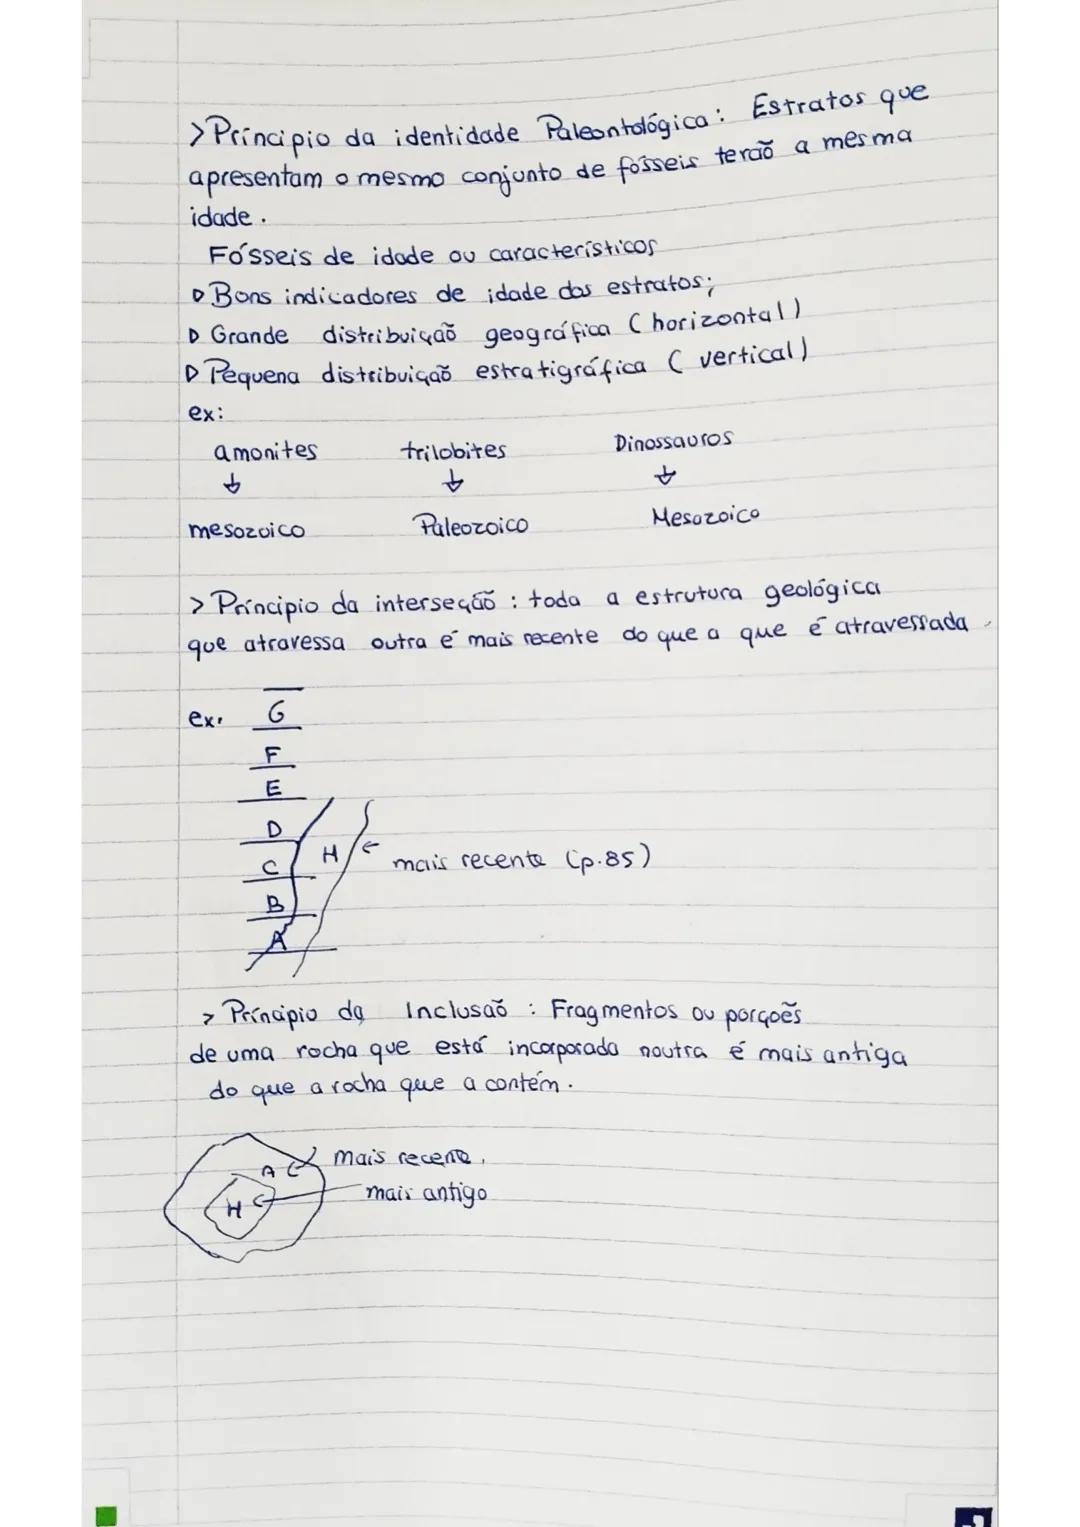 >Príncipio da identidade Paleontológica: Estratos que
apresentam o mesmo conjunto de fósseis terão a mesma
idade.
Fósseis de idade ou característicos
▷ Bons indicadores de idade dos estratos;
▷ Grande distribuição geográfica (horizontal)
▷ Pequena distribuição estratigráfica (vertical)
ex:
amonites trilobites Dinossauros
mesozoico Paleozoico Mesozoico
> Príncipio da interseção: toda a estrutura geológica
que atravessa outra é mais recente do que a que é atravessada.
ex. G
F
E
D
H
C mais recente (p.85)
B
A
> Príncipio da Inclusão: Fragmentos ou porções
de uma rocha que está incorporada noutra é mais antiga
do que a rocha que a contém.
A mais recente.
H mais antigo